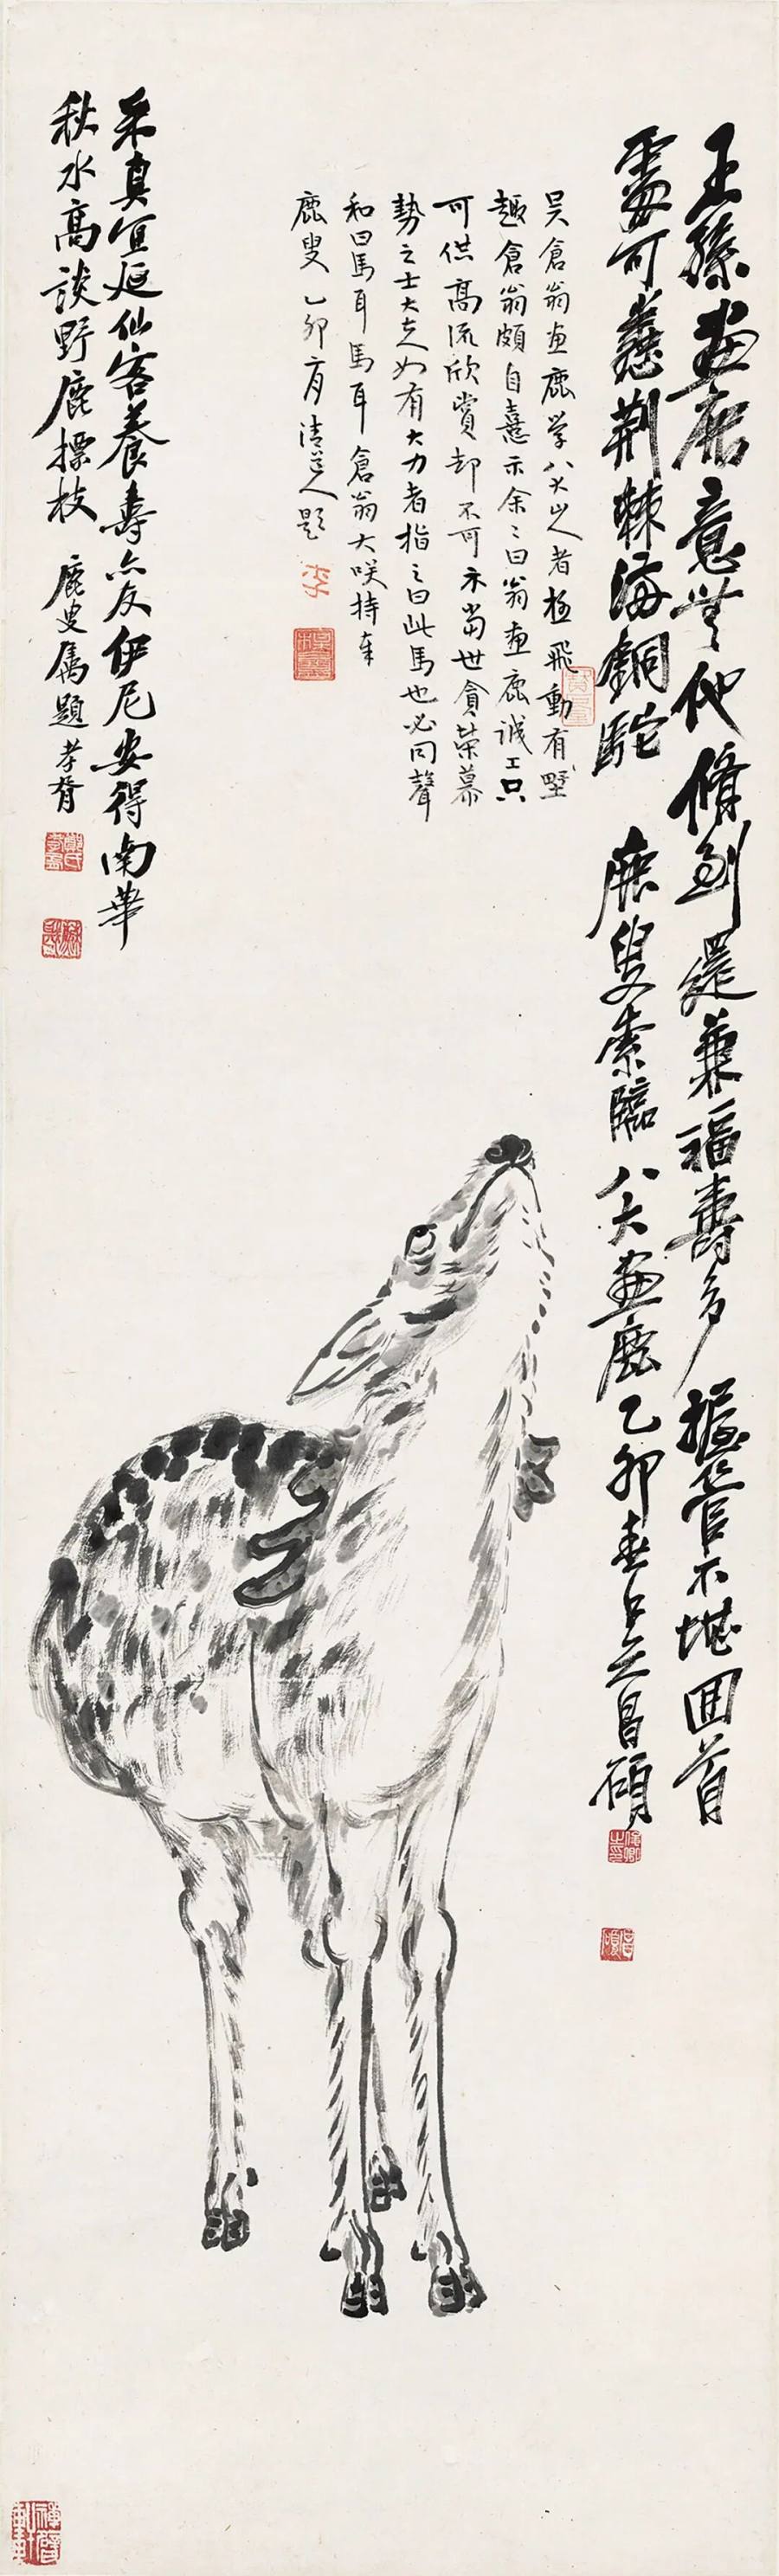 王孫畫鹿意無他脩到還兼福壽多握管不堪回首
處可蠭荆棘海銅駝 鹿叟索臨八大畫鹿乙卯春吳昌碩
吳倉翁画鹿學八大山人者極飛動有野
趣倉翁頗自憙示余二曰翁画鹿誠工只
可供高流欣賞却不可示當世貪榮慕
勢之士大夫如有大力者指之曰此馬也必同聲
和曰馬耳馬耳倉翁大咲持奉
鹿叟乙卯二月清道人題
采真宜延仙客養壽亦友伊尼安得南華
秋水高談野鹿摽枝 鹿叟屬題孝胥